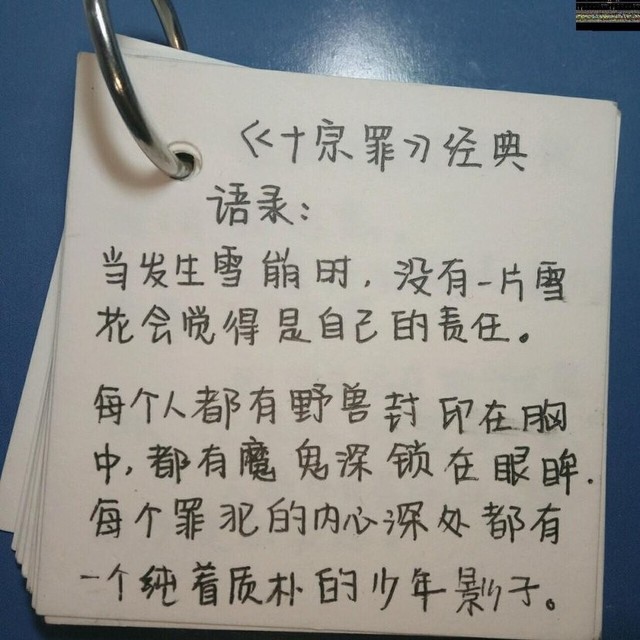 《十宗罪》经典
语录：
当发生雪崩时，没有一片雪
花会觉得是自己的责任。
每个人都有野兽封印在胸
中，都有魔鬼深锁在眼眸．
每个罪犯的内心深处都有
一个纯着质朴的少年影子。